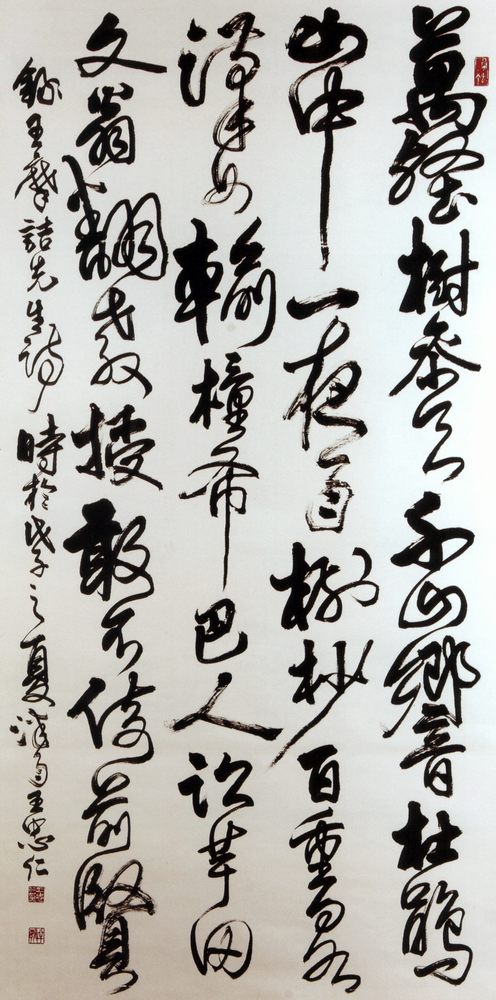 萬壑樹參天千山響杜鵑
山中一夜雨樹杪百重泉
漢女輸橦布巴人訟芋田
文翁翻教授敢不倚前賢
錄王摩詰先生詩時於戊子之夏王忠仁